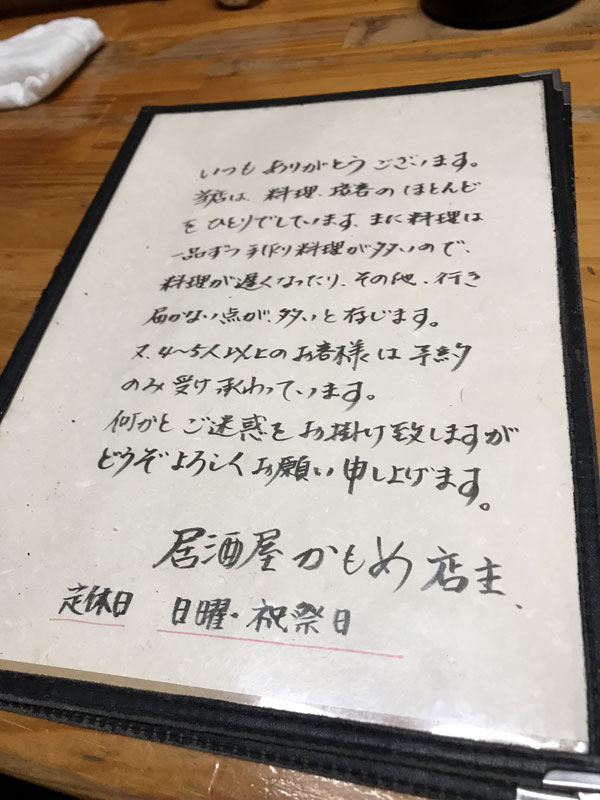 いつも ありがとう ございます。
当店は、料理、接客の ほとんど
を ひとりでしています、また料理は
一品ずつ 手作り料理が多いので、
料理が遅くなったり、その他、行き
届かない点が、多いと存じます。
又、4〜5人以上のお客様は予約
のみ受け承わっています。
何かと ご迷惑を お掛け致しますが
どうぞよろしく お願い申し上げます。
居酒屋かもめ 店主、
定休日 日曜・祝祭日